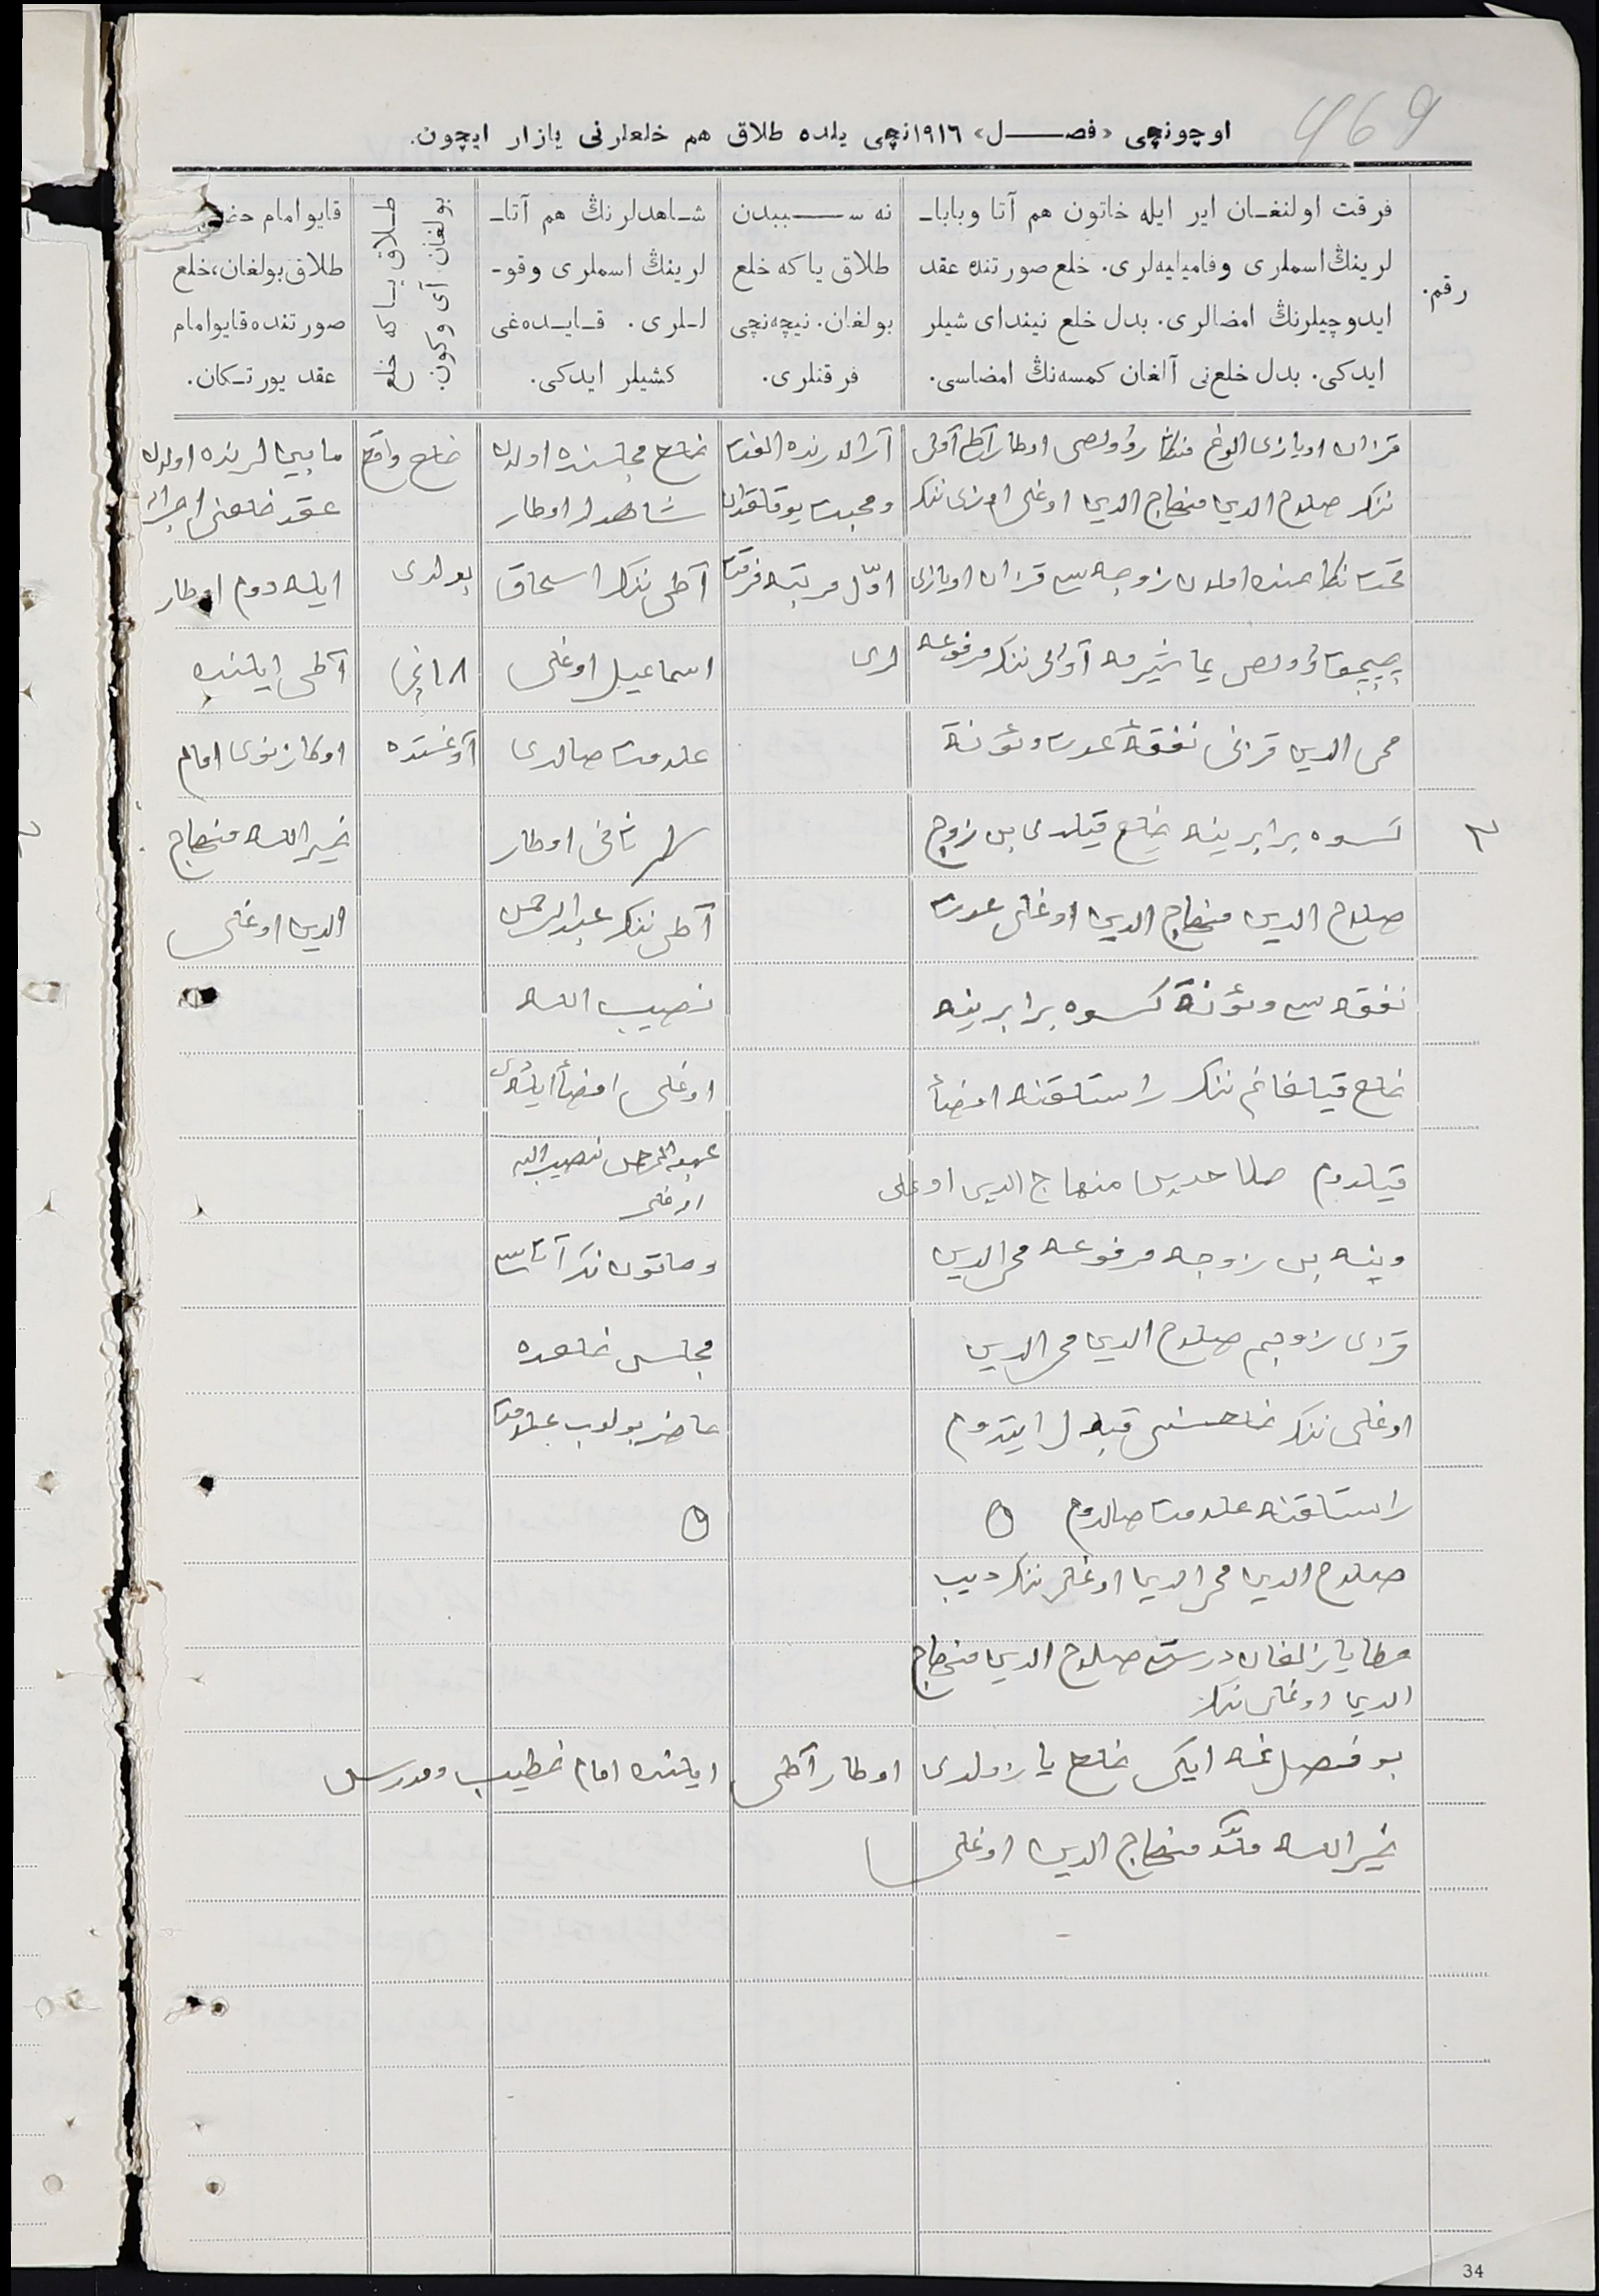 469
اوچونچی «فصـــل» ١٩١٦نچی یلده طلاق هم خلعلرنی یازار ایچون.
رقم.
فرقت اولنغـان ایر ایله خاتون هم آتا وبابا-
لرینڭ اسملری وفامیلیه‌لری. خلع صورتنده عقد
ایدوچیلرنڭ امضالری. بدل خلع نیندای شیلر
ایدکی. بدل خلع‌نی آلغان کمسه‌نڭ امضاسی.
نه ســـببدن
طلاق یاکه خلع
بولغان. نیچه‌نچی
فرقتلری.
شـاهدلرنڭ هم آتا-
لرینڭ اسملری وقو-
لـلری. قـایـده‌غی
کشیلر ایدکی.
طـلاق یـاکه خلع
بولغان آی وکون.
قایو امام
طلاق بولغان، خلع
صورتنده قایو امام
عقد یورتـکان.
قزان اویازی الوغ
ننکر صلاح الدین منهاج الدین اوغلی اوزی ننکر
تحت نکاحنده اولان زوجه سی قزان اویازی
آولی ننکر مرفوعه
محی الدین قزینی نفقهٔ عدت و مؤنة
٢
کسوه برابرینه خلع قیلدی بن زوج
صلاح الدین منهاج الدین اوغلی عدت
نفقه سی و مؤنة کسوه برابرینه
خلع قیلغانم ننکر راستلقنه امضأ
قیلدوم صلاحدین منهاج الدین اوغلی
وینه بن زوجه مرفوعه محی الدین
قزی زوجم صلاح الدین محی الدین
اوغلی ننکر خلعسنی قبول ایتدوم
راستلقنه علامت صالدوم
صلاح الدین محی الدین اوغلی ننکر دیب
خطا یازلغان درست صلاح الدین منهاج
الدین اوغلی ننکر
آرالارنده الفت
ومحبت یوقلقدان
اوّل مرتبه فرقت
لری
خلع مجلسنده اولان
شاهدلر اوطار
آطی ننکر اسحاق
اسماعیل اوغلی
علامت صالدی
ثانی اوطار
آطی ننکر عبدالرحمن
نصیب الله
اوغلی امضأ ایلدی
عبدالرحمن نصیب الله
اوغلی
وخاتون ننکر آتاسی
مجلس خلعده
حاضر بولوب علامت
خلع واقع
بولدی
١٨ نچی
آوغستده
مابین لرنده اولان
عقد خلعنی اجرا
ایله دوم اوطار
آطی ایلنده
اوکازنوی امام
خیرالله منهاج
الدین اوغلی
بو فصل غه ایکی خلع یازولدی اوطار آطی ایلنده امام خطیب و مدرس
خیرالله ملّا منهاج الدین اوغلی
34